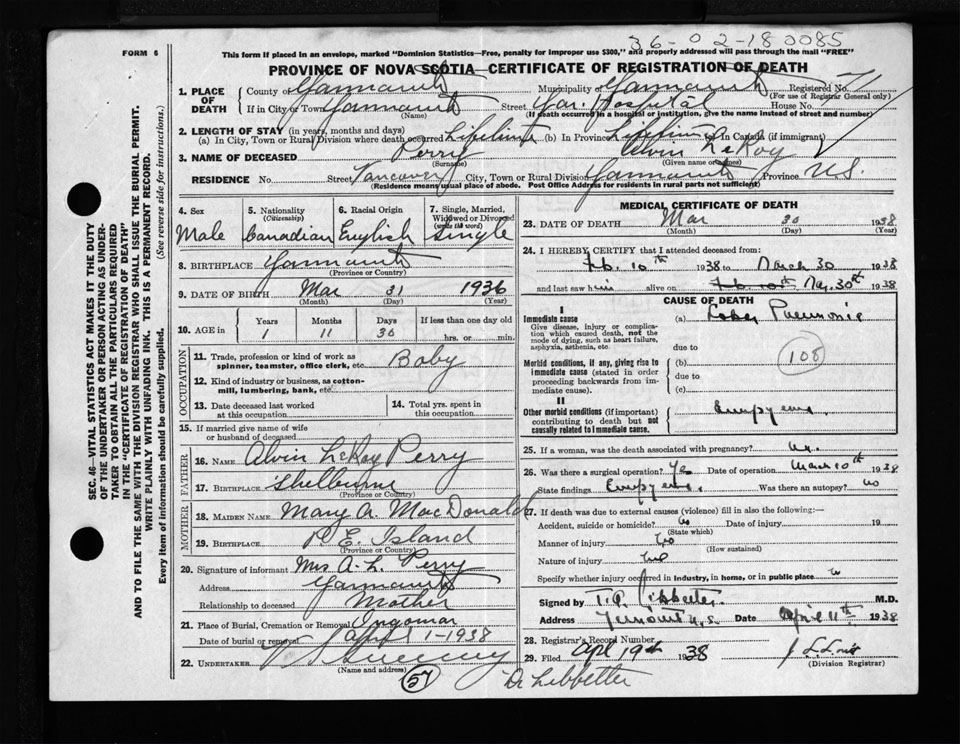 36-02-18 0085
FORM 6
This form if placed in an envelope, marked "Dominion Statistics—Free, penalty for improper use $300," and properly addressed will pass through the mail "FREE"
PROVINCE OF NOVA SCOTIA—CERTIFICATE OF REGISTRATION OF DEATH
SEC. 46—VITAL STATISTICS ACT MAKES IT THE DUTY
OF THE UNDERTAKER OR PERSON ACTING AS UNDER-
TAKER TO OBTAIN ALL THE PARTICULARS REQUIRED
IN THE "CERTIFICATE OF REGISTRATION OF DEATH"
AND TO FILE THE SAME WITH THE DIVISION REGISTRAR WHO SHALL ISSUE THE BURIAL PERMIT.
WRITE PLAINLY WITH UNFADING INK. THIS IS A PERMANENT RECORD.
Every item of information should be carefully supplied. (See reverse side for instructions.)
1. PLACE OF DEATH County of Yarmouth Municipality of Yarmouth Registered No. 71
(For use of Registrar General only)
If in City or Town Yarmouth Street Yar. Hospital House No.
(Name) (If death occurred in a hospital or institution, give the name instead of street and number)
2. LENGTH OF STAY (in years, months and days)
(a) In City, Town or Rural Division where death occurred Lifetime (b) In Province Lifetime (c) In Canada (if immigrant)
3. NAME OF DECEASED Perry Alvin LeRoy
(Surname) (Given name or names)
RESIDENCE No. Street Vancouver City, Town or Rural Division Yarmouth Province N.S.
(Residence means usual place of abode. Post Office Address for residents in rural parts not sufficient)
4. Sex Male
5. Nationality (Citizenship) Canadian
6. Racial Origin English
7. Single, Married, Widowed or Divorced (write the word) Single
8. BIRTHPLACE Yarmouth
(Province or Country)
9. DATE OF BIRTH Mar 31 1936
(Month) (Day) (Year)
10. AGE in Years 1 Months 11 Days 30 If less than one day old hrs. or min.
OCCUPATION
11. Trade, profession or kind of work as spinner, teamster, office clerk, etc. Baby
12. Kind of industry or business, as cotton-mill, lumbering, bank, etc.
13. Date deceased last worked at this occupation
14. Total yrs. spent in this occupation
15. If married give name of wife or husband of deceased
FATHER
16. NAME Alvin LeRoy Perry
17. BIRTHPLACE Shelburne
(Province or Country)
MOTHER
18. MAIDEN NAME Mary A. MacDonald
19. BIRTHPLACE P. E. Island
(Province or Country)
20. Signature of informant Mrs A. L. Perry
Address Yarmouth
Relationship to deceased Mother
21. Place of Burial, Cremation or Removal Ingomar
Date of burial or removal April 1-1938
22. UNDERTAKER
(Name and address)
57
MEDICAL CERTIFICATE OF DEATH
23. DATE OF DEATH Mar 30 1938
(Month) (Day) (Year)
24. I HEREBY CERTIFY that I attended deceased from:
Feb. 10th 1938 to March 30 1938
and last saw him alive on Feb 10th Mar. 30th 1938
CAUSE OF DEATH
I
Immediate cause
Give disease, injury or complication which caused death, not the mode of dying, such as heart failure, asphyxia, asthenia, etc.
(a) Lobar Pneumonia
due to
108
Morbid conditions, if any, giving rise to immediate cause (stated in order proceeding backwards from immediate cause).
(b)
due to
(c)
II
Other morbid conditions (if important) contributing to death but not causally related to immediate cause.
Empyema
25. If a woman, was the death associated with pregnancy?
26. Was there a surgical operation? Yes Date of operation March 10th 1938
State findings Empyema. Was there an autopsy? no
27. If death was due to external causes (violence) fill in also the following:—
Accident, suicide or homicide? no Date of injury 19
(State which)
Manner of injury no
(How sustained)
Nature of injury no
Specify whether injury occurred in industry, in home, or in public place
Signed by T.A. Lebbetter M.D.
Address Yarmouth N.S. Date April 11th. 1938
28. Registrar's Record Number
29. Filed Apl 19th 1938
(Division Registrar)
Dr Lebbetter